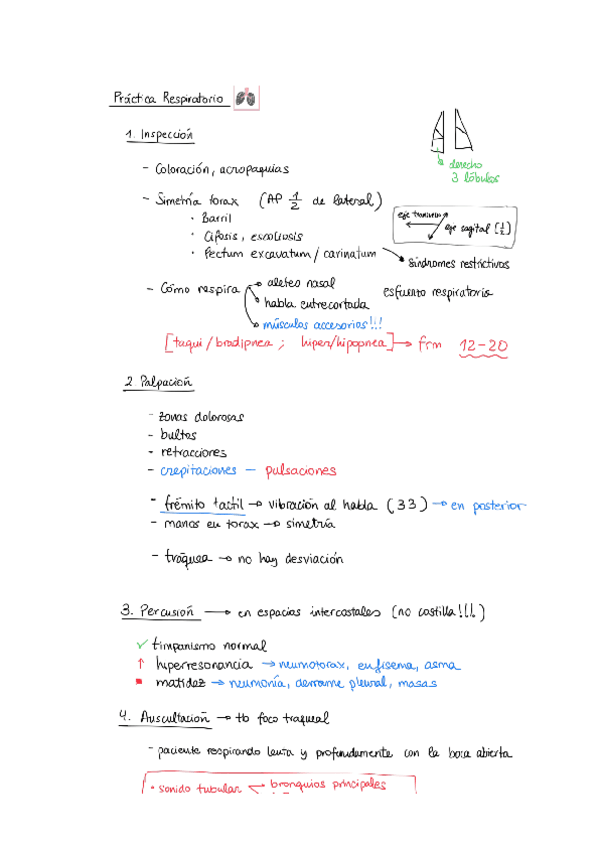 Práctica Respiratorio
1. Inspección
derecho
3 lóbulos
- Coloración, acropaquias
- Simetría torax (AP 1/2 de lateral)
· Barril
· Cifosis, escoliosis
· Pectum excavatum / carinatum
eje transverso
eje sagital (1/2)
síndromes restrictivos
- Cómo respira
aleteo nasal
habla entrecortada
músculos accesorios!!!
esfuerzo respiratorio
[taqui / bradipnea ; hiper/hipopnea] → frm 12-20
2. Palpación
- zonas dolorosas
- bultos
- retracciones
- crepitaciones - pulsaciones
- frémito tactil → vibración al habla (33) → en posterior
- manos en torax → simetría
- tráquea → no hay desviación
3. Percusión → en espacios intercostales (no costilla!!!)
✓ timpanismo normal
↑ hiperresonancia → neumotorax, enfisema, asma
▪ matidez → neumonía, derrame pleural, masas
4. Auscultación → tb foco traqueal
- paciente respirando lenta y profundamente con la boca abierta
· sonido tubular ← bronquios principales